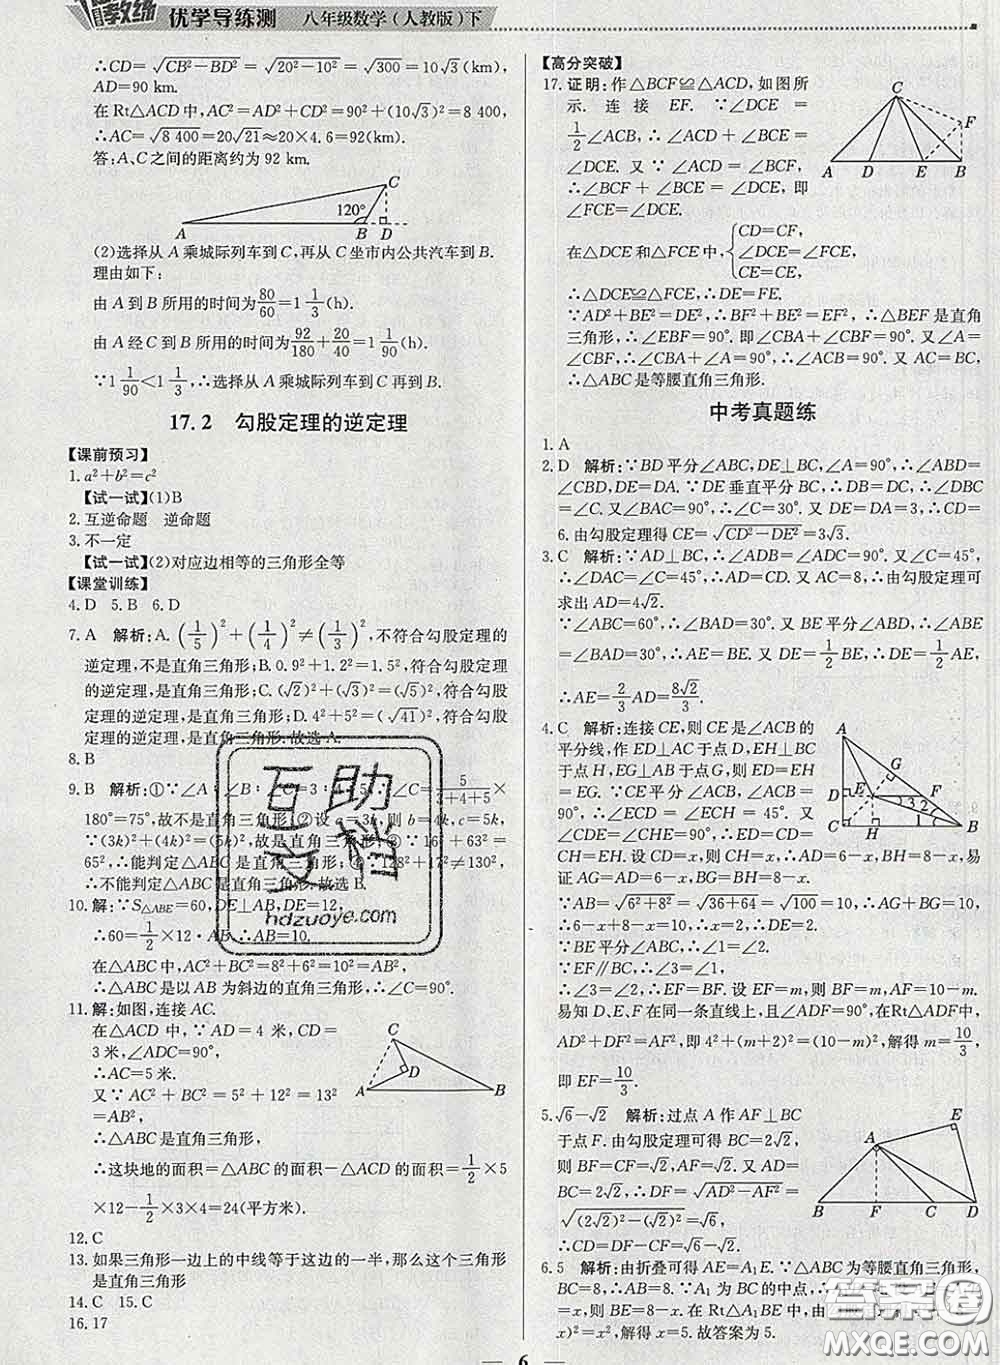 教练 优学导练测 八年级数学(人教版)下
∴CD=√(CB²−BD²)=√(20²−10²)=√300=10√3(km),
AD=90 km.
在Rt△ACD中,AC²=AD²+CD²=90²+(10√3)²=8 400
∴AC=√(8 400)=20√21≈20×4.6=92(km).
答:A、C之间的距离约为92 km.
C
120°
A B D
(2)选择从A乘城际列车到C,再从C坐市内公共汽车到B.
理由如下:
由A到B所用的时间为80/60=1 1/3(h).
由A经C到B所用的时间为92/180+20/40=1 1/90(h).
∵1 1/90<1 1/3,∴选择从A乘城际列车到C再到B.
17.2 勾股定理的逆定理
【课前预习】
1.a²+b²=c²
【试一试】(1)B
2.互逆命题 逆命题
3.不一定
【试一试】(2)对应边相等的三角形全等
【课堂训练】
4.D 5.B 6.D
7.A 解析:A.(1/5)²+(1/4)²≠(1/3)²,不符合勾股定理的
逆定理,不是直角三角形;B.0.9²+1.2²=1.5²,符合勾股定理
的逆定理,是直角三角形;C.(√2)²+(√3)²=(√5)²,符合勾股
定理的逆定理,是直角三角形;D.4²+5²=(√41)²,符合勾股
定理的逆定理,是直角三角形.故选A.
8.B
9.B 解析:①∵∠A:∠B:∠C=3:4:5,∴∠C=5/(3+4+5)×
180°=75°,故不是直角三角形;②设a=3k,则b=4k,c=5k,
∵(3k)²+(4k)²=(5k)²,故是直角三角形;③∵16²+63²=
65²,∴能判定△ABC是直角三角形;④∵128²+112²≠130²,
∴不能判定△ABC是直角三角形.故选B.
10.解:∵S△ABE=60,DE⊥AB,DE=12,
∴60=1/2×12·AB,∴AB=10.
在△ABC中,AC²+BC²=8²+6²=10²=AB²,
∴△ABC是以AB为斜边的直角三角形,∴∠C=90°.
11.解:如图,连接AC.
在△ACD中,∵AD=4米,CD=
3米,∠ADC=90°,
∴AC=5米.
又∵AC²+BC²=5²+12²=13²
=AB²,
∴△ABC是直角三角形,
∴这块地的面积=△ABC的面积−△ACD的面积=1/2×5
×12−1/2×3×4=24(平方米).
C
D
A B
12.C
13.如果三角形一边上的中线等于这边的一半,那么这个三角形
是直角三角形
14.C 15.C
16.17
【高分突破】
17.证明:作△BCF≌△ACD,如图所
示.连接EF.∵∠DCE=
1/2∠ACB,∴∠ACD+∠BCE
=∠DCE.又∵∠ACD=∠BCF,
∴∠BCF+∠BCE=∠DCE,即
∠FCE=∠DCE.
C
F
A D E B
在△DCE和△FCE中,{CD=CF,
∠DCE=∠FCE,
CE=CE,
∴△DCE≌△FCE,∴DE=FE.
∵AD²+BE²=DE²,∴BF²+BE²=EF²,∴△BEF是直角
三角形,∴∠EBF=90°.即∠CBA+∠CBF=90°.又∠A=
∠CBF,∴∠CBA+∠A=90°,∴∠ACB=90°.又AC=BC,
∴△ABC是等腰直角三角形.
中考真题练
1.A
2.D 解析:∵BD平分∠ABC,DE⊥BC,∠A=90°,∴∠ABD=
∠CBD,DE=DA.∵DE垂直平分BC,∴DB=DC,∴∠DBC
=∠C.又∠ABC+∠C=90°,∴∠C=30°,∴CD=2DE=
6.由勾股定理得CE=√(CD²−DE²)=3√3.
3.C 解析:∵AD⊥BC,∴∠ADB=∠ADC=90°.又∠C=45°,
∴∠DAC=∠C=45°,∴AD=CD.又AC=8,∴由勾股定理可
求出AD=4√2.
∵∠ABC=60°,∴∠BAD=30°.又BE平分∠ABC,∴∠ABE
=∠DBE=30°,∴∠ABE=∠BAD=30°,∴AE=BE.又DE=1/2BE,∴DE=1/2AE,
∴AE=2/3AD=8√2/3.
4.C 解析:连接CE,则CE是∠ACB的
平分线,作ED⊥AC于点D,EH⊥BC
于点H,EG⊥AB于点G,则ED=EH
=EG.∵∠ECD=∠ECH=45°.又
∠CDE=∠CHE=90°,∴ED=CD=
CH=EH.设CD=CH=x,∴AD=6−x,BH=8−x,易
证AD=AG=6−x,BH=BG=8−x,
∵AB=√(6²+8²)=√(36+64)=√100=10,∴AG+BG=10,
∴6−x+8−x=10,∴x=2,∴AD=4.
∵BE平分∠ABC,∴∠1=∠2.
∵EF∥BC,∴∠1=∠3,
∴∠3=∠2,∴EF=BF.设EF=m,则BF=m,AF=10−m.
易知D、E、F在同一条直线上,且∠ADF=90°,在Rt△ADF中,
AD²+DF²=AF²,即4²+(m+2)²=(10−m)²,解得m=10/3,
即EF=10/3.
A
D E G F
3 2
1
C H B
5.√6−√2 解析:过点A作AF⊥BC
于点F.由勾股定理可得BC=2√2,
则BF=CF=√2,AF=√2,又AD=
BC=2√2,∴DF=√(AD²−AF²)=
√((2√2)²−(√2)²)=√6,
∴CD=DF−CF=√6−√2.
E
A
B F C D
6.5 解析:由折叠可得AE=A₁E.∵△ABC为等腰直角三角形,
BC=8,∴AB=8.∵A₁为BC的中点,
x)²=x²,解得x=5.故答案为5.
6
互助文档
hdzuoye.com
答案圈
MXQE.COM